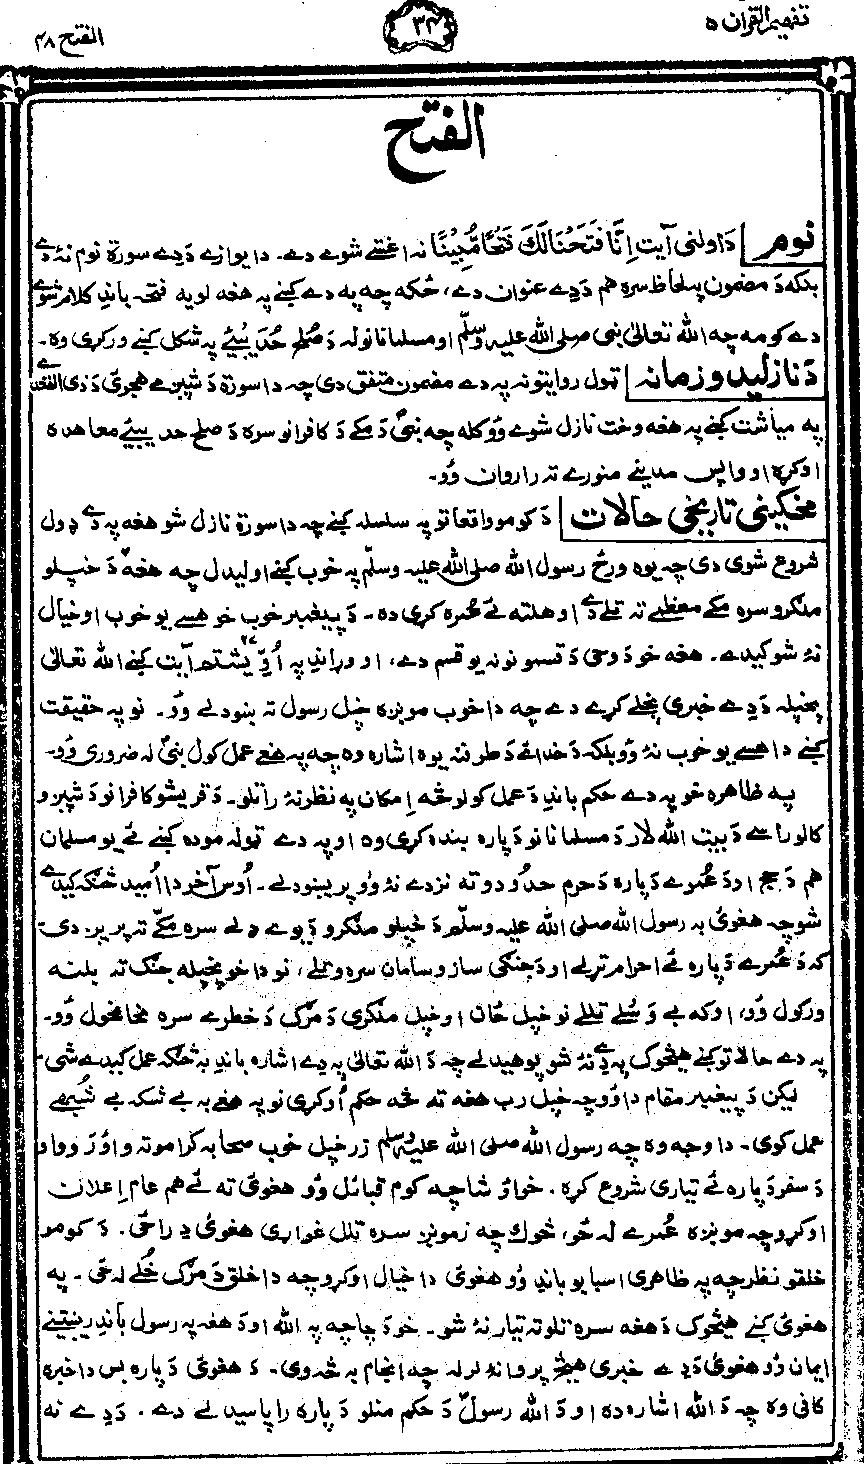 تفهیم القرآن ۵
۳۴
الفتح ۴۸
الفتح
نوم دَ اولنی آیت اِنَّا فَتَحْنَا لَكَ فَتْحًا مُّبِیْنًا نه اغستے شوے دے۔ دا یوازے دَدِے سورة نوم نۀ دے
بلکه دَ مضمون په لحاظ سره هم دَدِے عنوان دے، ځکه چه په دے کښے په هغه لویه فتحه باندِ کلام شوے
دے کومه چه الله تعالیٰ نبی صلی الله علیه وسلّم او مسلمانانو له دَ صُلح حُدَیبیّے په شکل کښے ورکړی وه۔
دَ نازلیدو زمانه ټول روایتونه په دے مضمون متفق دی چه دا سورة دَ شپږمے هجرئ دَ ذی القعدے
په میاشت کښے په هغه وخت نازل شوے وُو کله چه نبیؐ دَ مکے دَ کافرانو سره دَ صلح حدیبیّے معاهده
اوکړه او واپس مدینے منورے ته راروان وُو۔
مخکینی تاریخی حالات دَ کومو واقعاتو په سلسله کښے چه دا سورة نازل شو هغه په دے ډول
شروع شوی دی چه یوه ورځ رسول الله صلی الله علیه وسلّم په خوب کښے اولیدل چه هغهؐ دَ خپلو
ملګرو سره مکے معظمے ته تلے دے او هلته ئے عُمره کړی ده۔ دَ پیغمبر خوب خو هسے یو خوب او خیال
نۀ شو کیدے۔ هغه خو دَ وحی دَ قسمونو نه یو قسم دے، او وړاندِ په اُوؤیشتم ۲۷ آیت کښے الله تعالیٰ
پخپله دَدِے خبرے پخلے کړے دے چه دا خوب مونږه خپل رسول ته ښودلے وُو۔ نو په حقیقت
کښے دا هسے یو خوب نۀ وُو بلکه دَ خدائے دَ طرفنه یوه اشاره وه چه په هغے عمل کول نبیؐ له ضروری وُو۔
په ظاهره خو په دے حکم باندِ دَ عمل کولو څه اِمکان په نظر نۀ راتلو۔ دَ قریشو کافرانو دَ شپږو
کالو راسے دَ بیت الله لار دَ مسلمانانو دَ پاره بنده کړی وه او په دے ټوله موده کښے ئے یو مسلمان
هم دَ حج او دَ عُمرے دَ پاره دَ حرم حدُودو ته نزدے نۀ وُو پریښودلے۔ اُوس آخر دا اُمید څنګه کیدے
شو چه هغوئ به رسول الله صلی الله علیه وسلّم دَ خپلو ملګرو دَ یوے ډلے سره مکّے ته پریږدی۔
که دَ عُمرے دَ پاره ئے احرام تړلے او دَ جنګی ساز و سامان سره وتلے، نو دا خو پخپله جنګ ته بلنه
ورکول وُو، او که بے وَسلے تللے نو خپل ځان او خپل ملګری دَ مرګ دَ خطرے سره مخامخول وُو۔
په دے حالاتو کښے هیڅوک په دِے نۀ شو پوهیدلے چه دَ الله تعالیٰ په دِے اشاره باندِ به څنګه عمل کیدے شی۔
لیکن دَ پیغمبر مقام دا وُو چه خپل رب هغه ته څه حکم اُوکړی نو په هغے به بے شکه بے شُبهے
عمل کوی۔ دا وجه وه چه رسول الله صلی الله علیه وسلّم زر خپل خوب صحابه کرامو ته واؤرَوو او
دَ سفر دَ پاره ئے تیاری شروع کړه۔ خواؤ شا چه کوم قبائل وُو هغوئ ته ئے هم عام اِعلان
اوکړو چه مونږه عُمرے له ځو، څوك چه زمونږ سره تلل غواړی هغوئ دِ راځی۔ دَ کومو
خلقو نظر چه په ظاهری اسبابو باندِ وُو هغوئ دا خیال اوکړو چه دا خلق دَ مرګ خُلے له ځی۔ په
هغوئ کښے هیڅوک دَ هغه سره تلو ته تیار نۀ شو۔ خو دَ چا چه په الله او دَ هغه په رسول باندِ رښتینے
ایمان وُو هغوئ دَدِے خبرے هیڅ پروا نۀ لرله چه انجام به څۀ وی۔ دَ هغوئ دَ پاره بس دا خبره
کافی وه چه دَ الله اشاره ده او دَ الله رسولؐ دَ حکم منلو دَ پاره راپاسیدلے دے۔ دَدِے نه